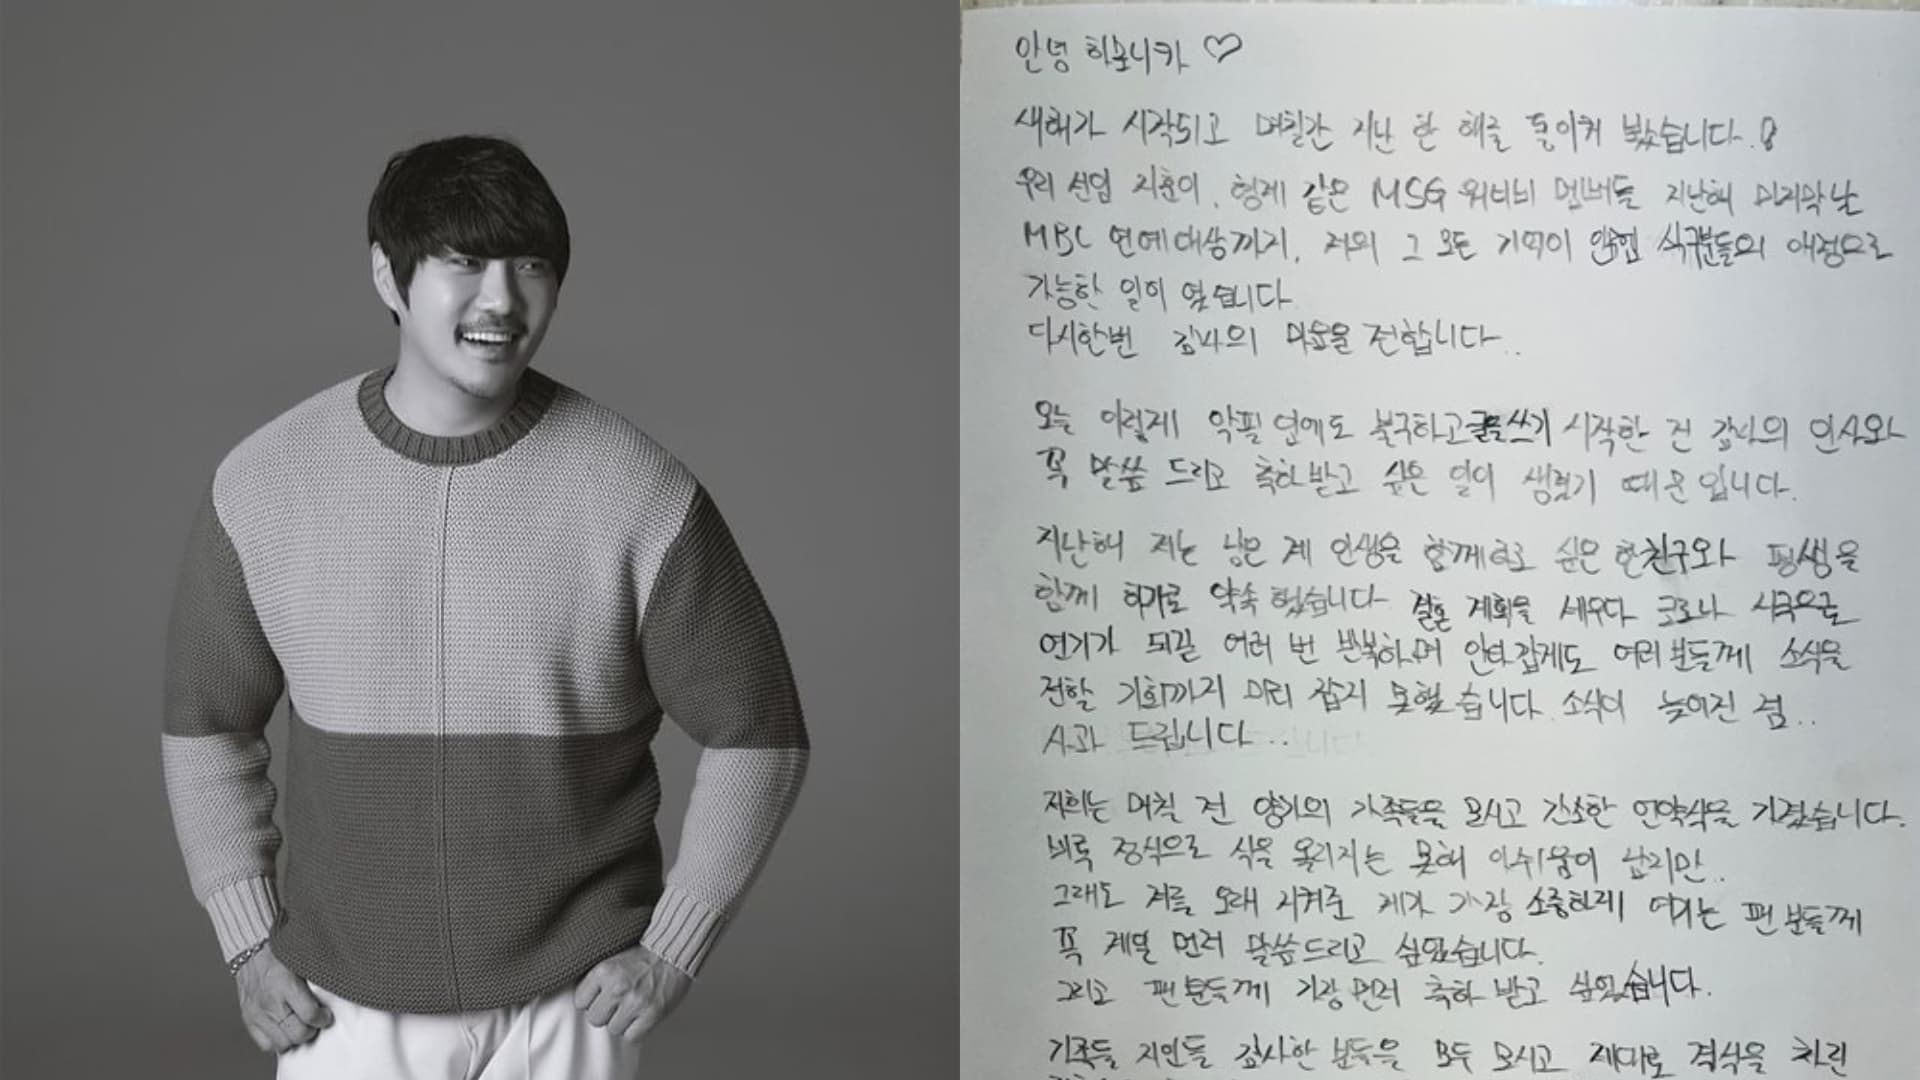 안녕 하모니카 ♡
새해가 시작되고 며칠간 지난 한 해를 돌이켜 봤습니다.
우리 선임 지훈이, 형제 같은 MSG 워너비 멤버들 지난해 마지막날
MBC 연예대상까지, 저의 그 모든 기억이 식구분들의 애정으로
가능한 일이 였습니다
다시한번 감사의 마음을 전합니다..
오늘 이렇게 악필 임에도 불구하고 글을쓰기 시작한 건 감사의 인사와
꼭 말씀 드리고 축하받고 싶은 일이 생겼기 때문 입니다.
지난해 저는 남은 제 인생을 함께하고 싶은 한친구와 평생을
함께 하기로 약속 했습니다 결혼 계획을 세우다 코로나 시국으로
연기가 되길 여러 번 반복하며 안타깝게도 여러분들께 소식을
전할 기회까지 미리 잡지 못했습니다 소식이 늦어진 점..
사과 드립니다..
저희는 며칠 전 양가의 가족들을 모시고 간소한 언약식을 가졌습니다.
비록 정식으로 식을 올리지는 못해 아쉬움이 남지만..
그래도 저를 오래 지켜준 제가 가장 소중하게 여기는 팬 분들께
꼭 제일 먼저 말씀드리고 싶었습니다.
그리고 팬분들께 가장 먼저 축하 받고 싶었습니다.
가족들 지인들 감사한 분들을 모두 모시고 제대로 격식을 차린